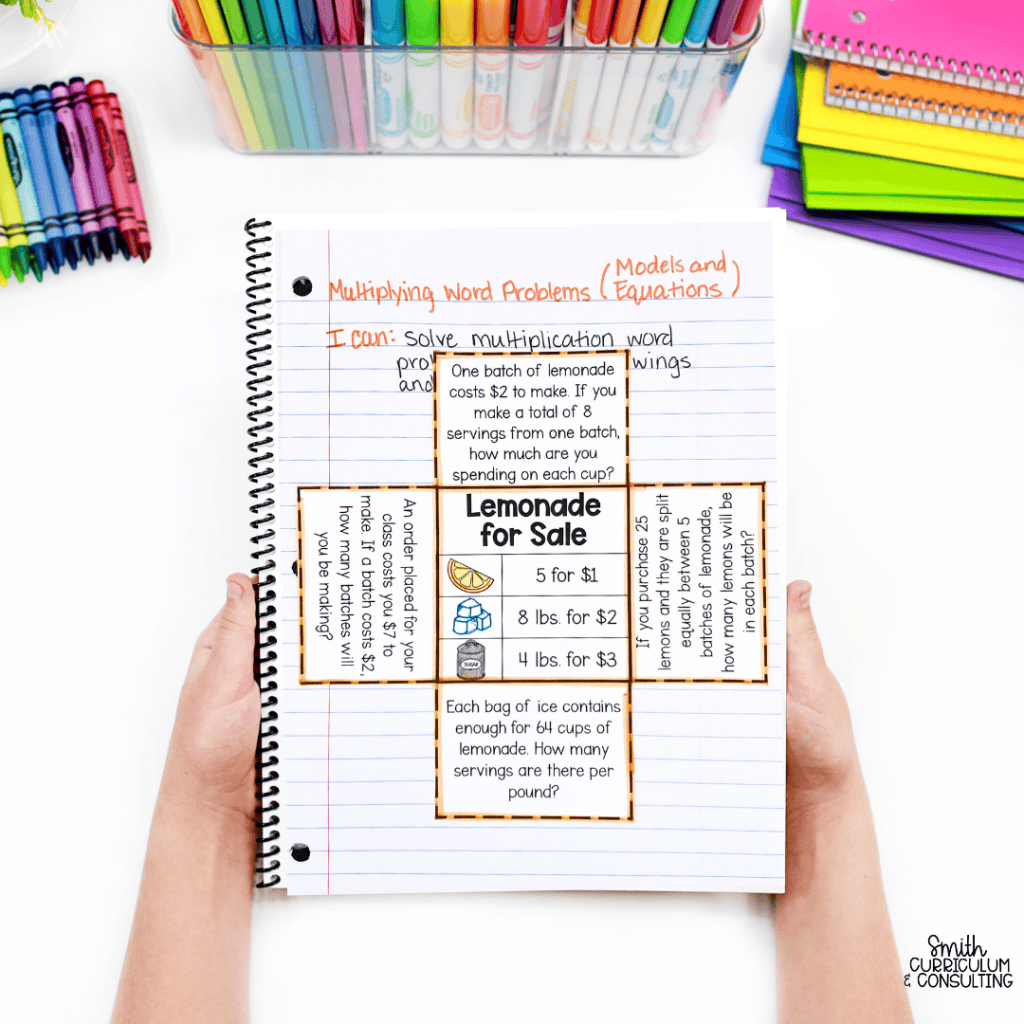 Multiplying Word Problems (Models and Equations)
I can: solve multiplication word
pro wings
and
One batch of lemonade
costs $2 to make. If you
make a total of 8
servings from one batch,
how much are you
spending on each cup?
An order placed for your
class costs you $7 to
make. If a batch costs $2,
how many batches will
you be making?
Lemonade
for Sale
5 for $1
8 lbs. for $2
SUGAR
4 lbs. for $3
If you purchase 25
lemons and they are split
equally between 5
batches of lemonade,
how many lemons will be
in each batch?
Each bag of ice contains
enough for 64 cups of
lemonade. How many
servings are there per
pound?
Smith
CURRICULUM
& CONSULTING